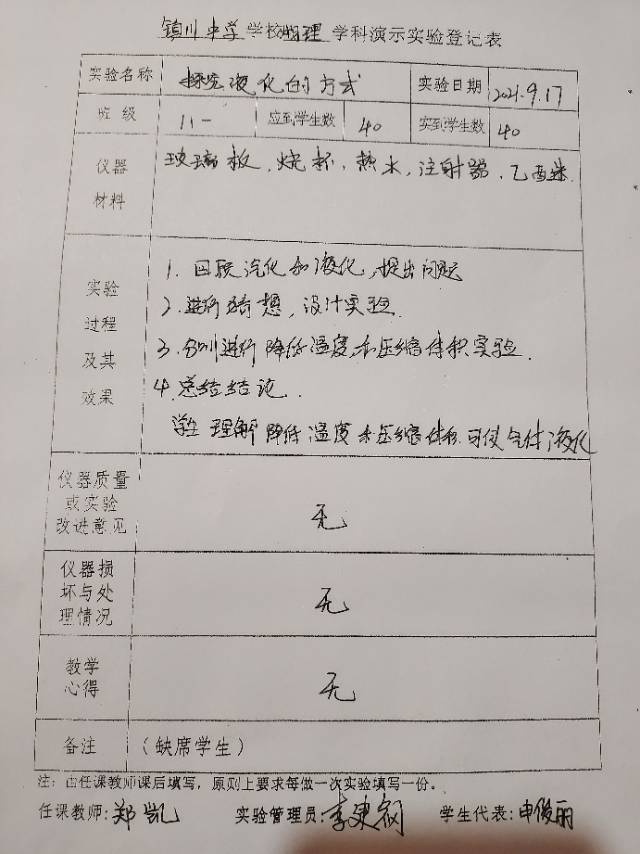 镇川中学学校物理学科演示实验登记表
实验名称 探究液化的方式 实验日期 2021.9.17
班级 八一 应到学生数 40 实到学生数 40
仪器材料 玻璃板、烧杯、热水、注射器、乙醚
实验过程及其效果
1.回顾汽化和液化,提出问题
2.进行猜想,设计实验.
3.分别进行降低温度和压缩体积实验.
4.总结结论.
学生理解降低温度和压缩体积可使气体液化
仪器质量或实验改进意见 无
仪器损坏与处理情况 无
教学心得 无
备注 (缺席学生)
注:由任课教师课后填写,原则上要求每做一次实验填写一份。
任课教师:郑凯 实验管理员:李建钢 学生代表:申俊丽